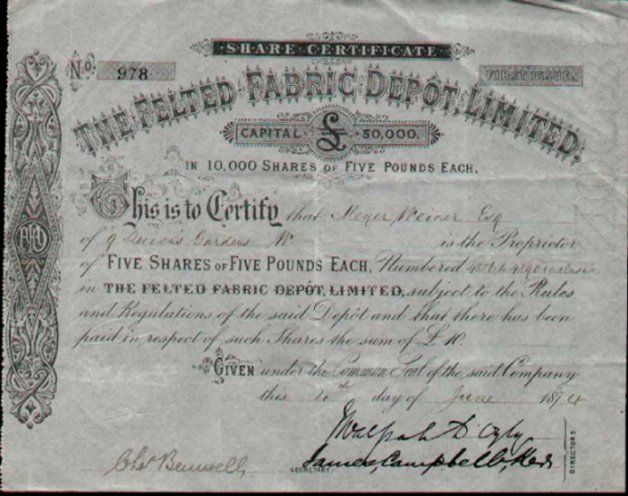 SHARE CERTIFICATE
No. 978 FIRST ISSUE.
THE FELTED FABRIC DEPÔT, LIMITED,
CAPITAL £ 50,000.
IN 10,000 SHARES OF FIVE POUNDS EACH.
This is to Certify that Meyer Esq
of 9 Queens Gardens W. is the Proprietor
of FIVE SHARES OF FIVE POUNDS EACH, Numbered inclusive
in THE FELTED FABRIC DEPÔT, LIMITED, subject to the Rules
and Regulations of the said Depôt and that there has been
paid in respect of such Shares the sum of £10.
GIVEN under the Common Seal of the said Company
this day of June 189
DIRECTORS
SECRETARY
James Campbell